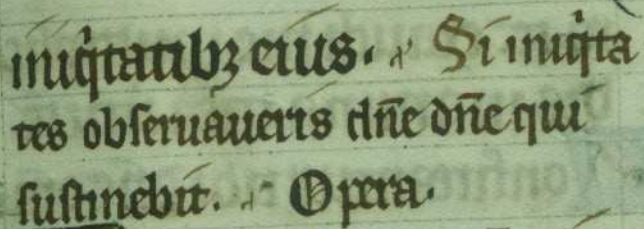 iniq̾tatibꝫ eius. Si iniq̾ta
tes obſeruaueris dn̄e dn̄e qui
ſuſtinebit. Opera.